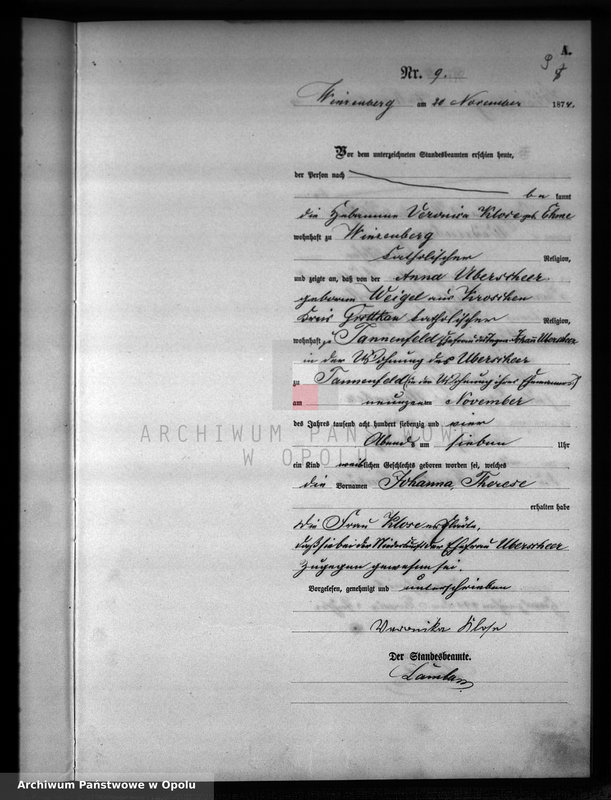 A.
Nr. 9.
9
8
Winzenberg am 20 November 1874.
Vor dem unterzeichneten Standesbeamten erschien heute,
der Person nach
be kannt
die Hebamme Veronica Klose geb.
wohnhaft zu Winzenberg
katholischer Religion,
und zeigte an, daß von der Anna Uberscheer
geborene Weigel aus
Kreis Grottkau katholischer Religion,
wohnhaft zu Tannenfeld Ehefrau des Uberscheer
in der Wohnung des Uberscheer
zu Tannenfeld (in der Wohnung ihres Ehemannes)
am neunzehn November
des Jahres tausend acht hundert siebenzig und vier
Abends um sieben Uhr
ein Kind weiblichen Geschlechts geboren worden sei, welches
die Vornamen Johanna, Therese
erhalten habe
Die Frau Klose erklärte,
daß sie bei der Niederkunft der Ehefrau Uberscheer
zugegen gewesen sei.
Vorgelesen, genehmigt und unterschrieben
Veronika Klose
Der Standesbeamte.
ARCHIWUM PAŃSTWOWE
W OPOLU
Archiwum Państwowe w Opolu